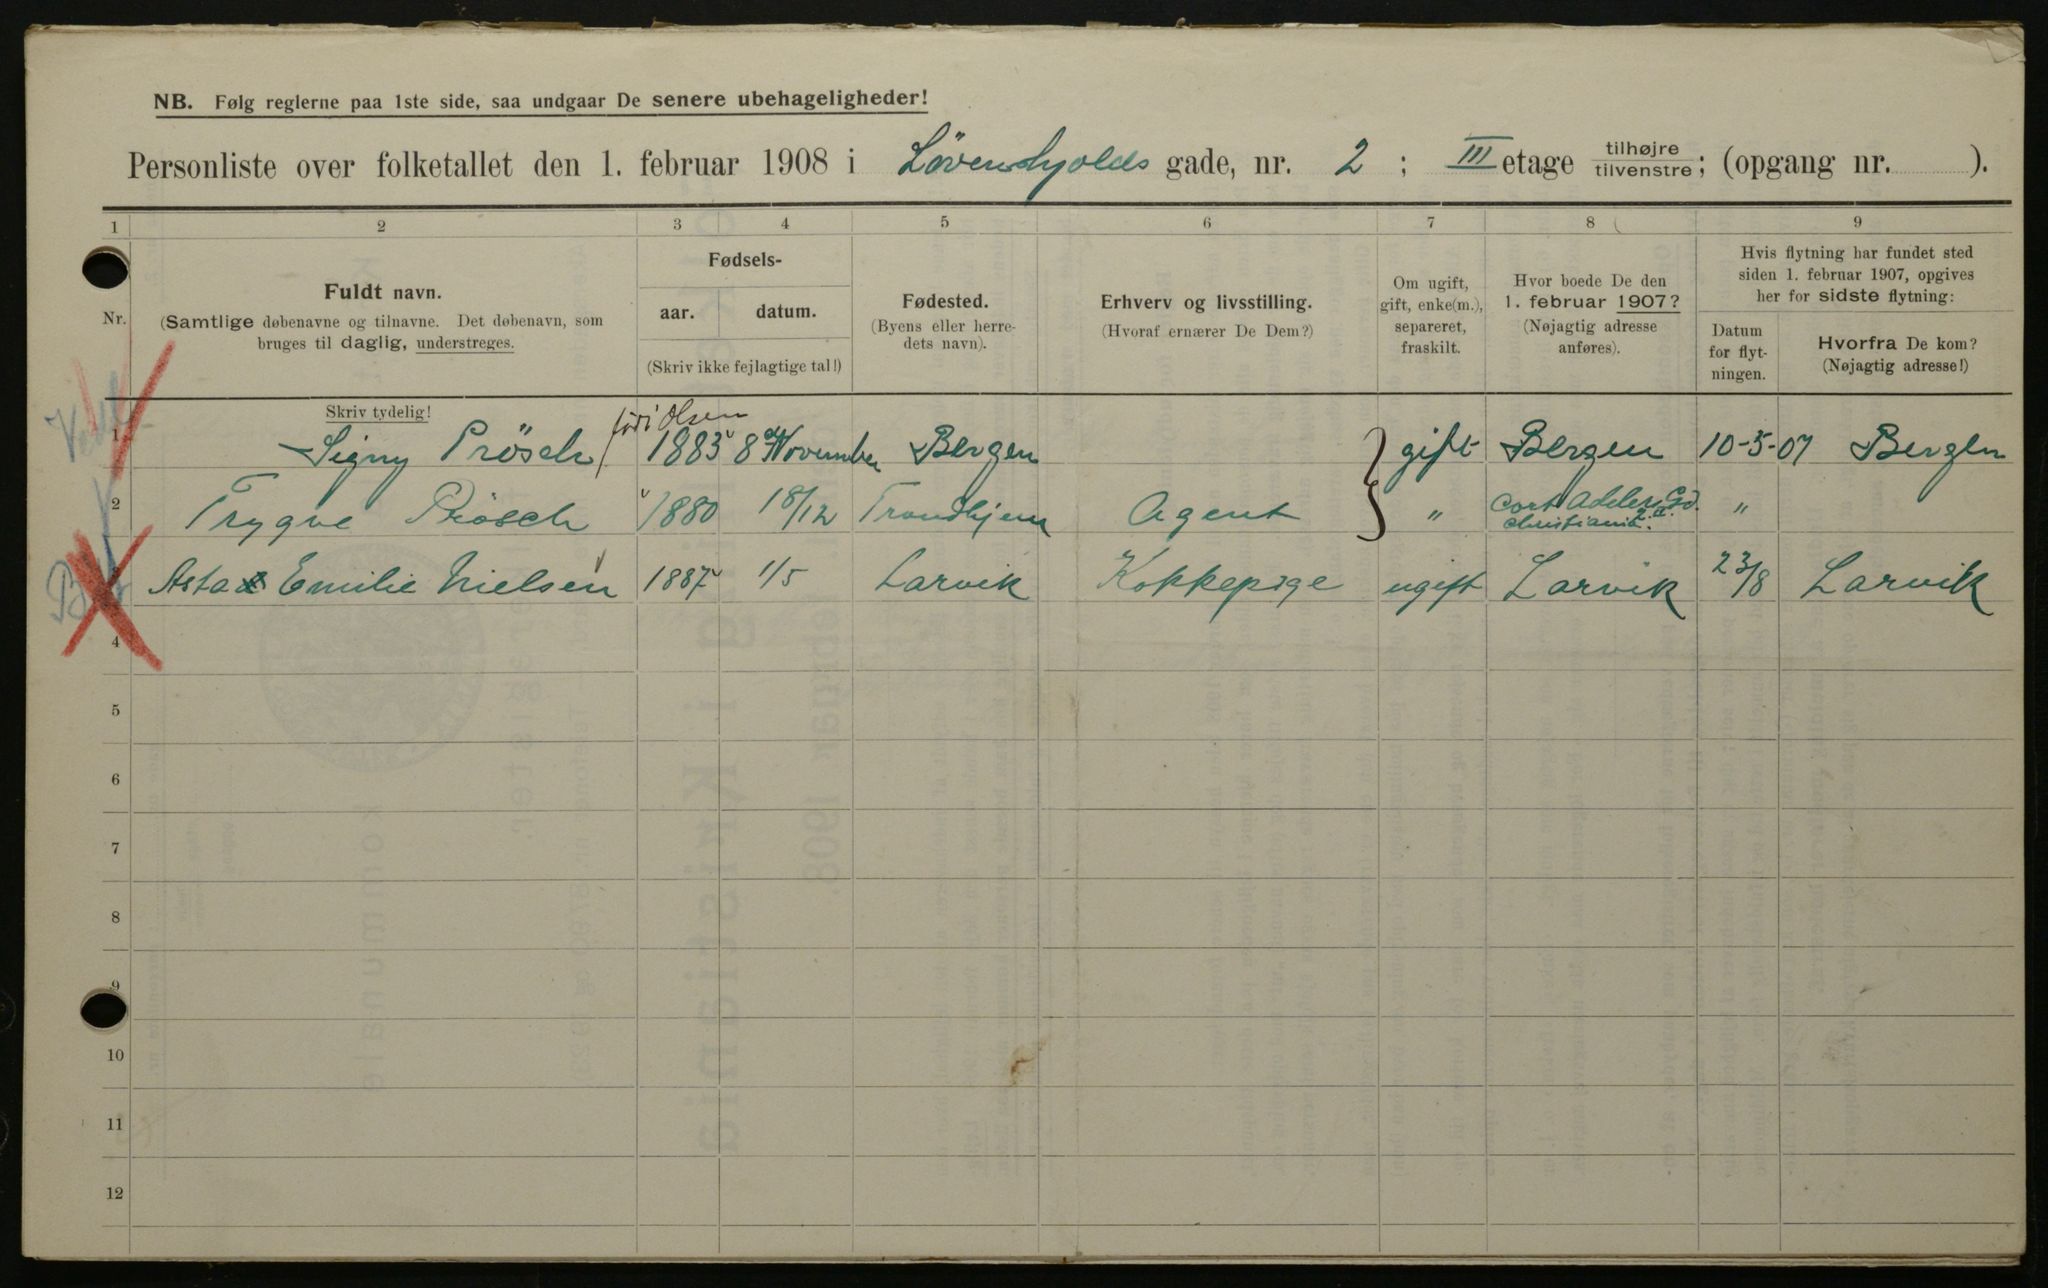 NB. Følg reglerne paa 1ste side, saa undgaar De senere ubehageligheder!
Personliste over folketallet den 1. februar 1908 i Lövenskjolds gade, nr. 2 ; III etage tilhøjre tilvenstre; (opgang nr. ).
1 2 3 4 5 6 7 8 9
Nr.
Fuldt navn.
(Samtlige døbenavne og tilnavne. Det døbenavn, som
bruges til daglig, understreges.
Skriv tydelig!
Fødsels-
aar. datum.
(Skriv ikke fejlagtige tal!)
Fødested.
(Byens eller herre-
dets navn).
Erhverv og livsstilling.
(Hvoraf ernærer De Dem?)
Om ugift,
gift, enke(m.),
separeret,
fraskilt.
Hvor boede De den
1. februar 1907?
(Nøjagtig adresse
anføres).
Hvis flytning har fundet sted
siden 1. februar 1907, opgives
her for sidste flytning:
Datum
for flyt-
ningen.
Hvorfra De kom?
(Nøjagtig adresse!)
1 Signy Prösch födt Olsen 1883 8 November Bergen gift Bergen 10-5-07 Bergen
2 Trygve Prösch 1880 18/12 Trondhjem Agent " Cort Adelers Gd. 2 a Christiania. "
3 Asta Emilie Nielsen 1887 1/5 Larvik Kokkepige ugift Larvik 23/8 Larvik
4
5
6
7
8
9
10
11
12